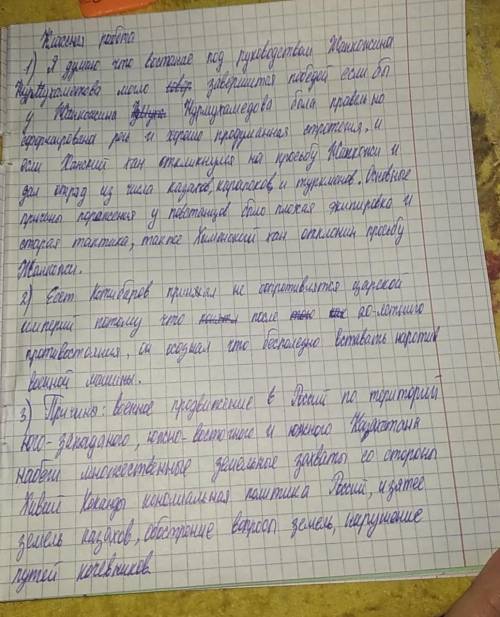 Классная работа
1) Я думаю что востание под руководством Жанкожина
Нурмухаметова могло завершится победой если бы
у Жанкожина Нурмухамедова была правельно
сформирована речь и хорошо продуманная стротегия, и
если Хинский хан откликнулся на просьбу Жанкожи и
дал отряд из числа казахов, каракоков, и туркменов. Основные
причины поражения у повстанцов было плохая экипировка и
старая тактика, также хан отклонил просьбу
Жанкожи.
2) Есет Котибаров принял не сопротивлятся царской
империй потому что после 20-летнего
противостояния, он осознал что бесполезно вставать напротив
военной машины.
3) Причины: военное продвижение в Россий по територий
юго-западного, южно-восточного и южного Казахстана
набеги множественные земельное захваты со стороны
Хивий Коканды колониальная политика Россий, изятее
земель казахов, обострение вопросы земель, нарушение
путей кочевников